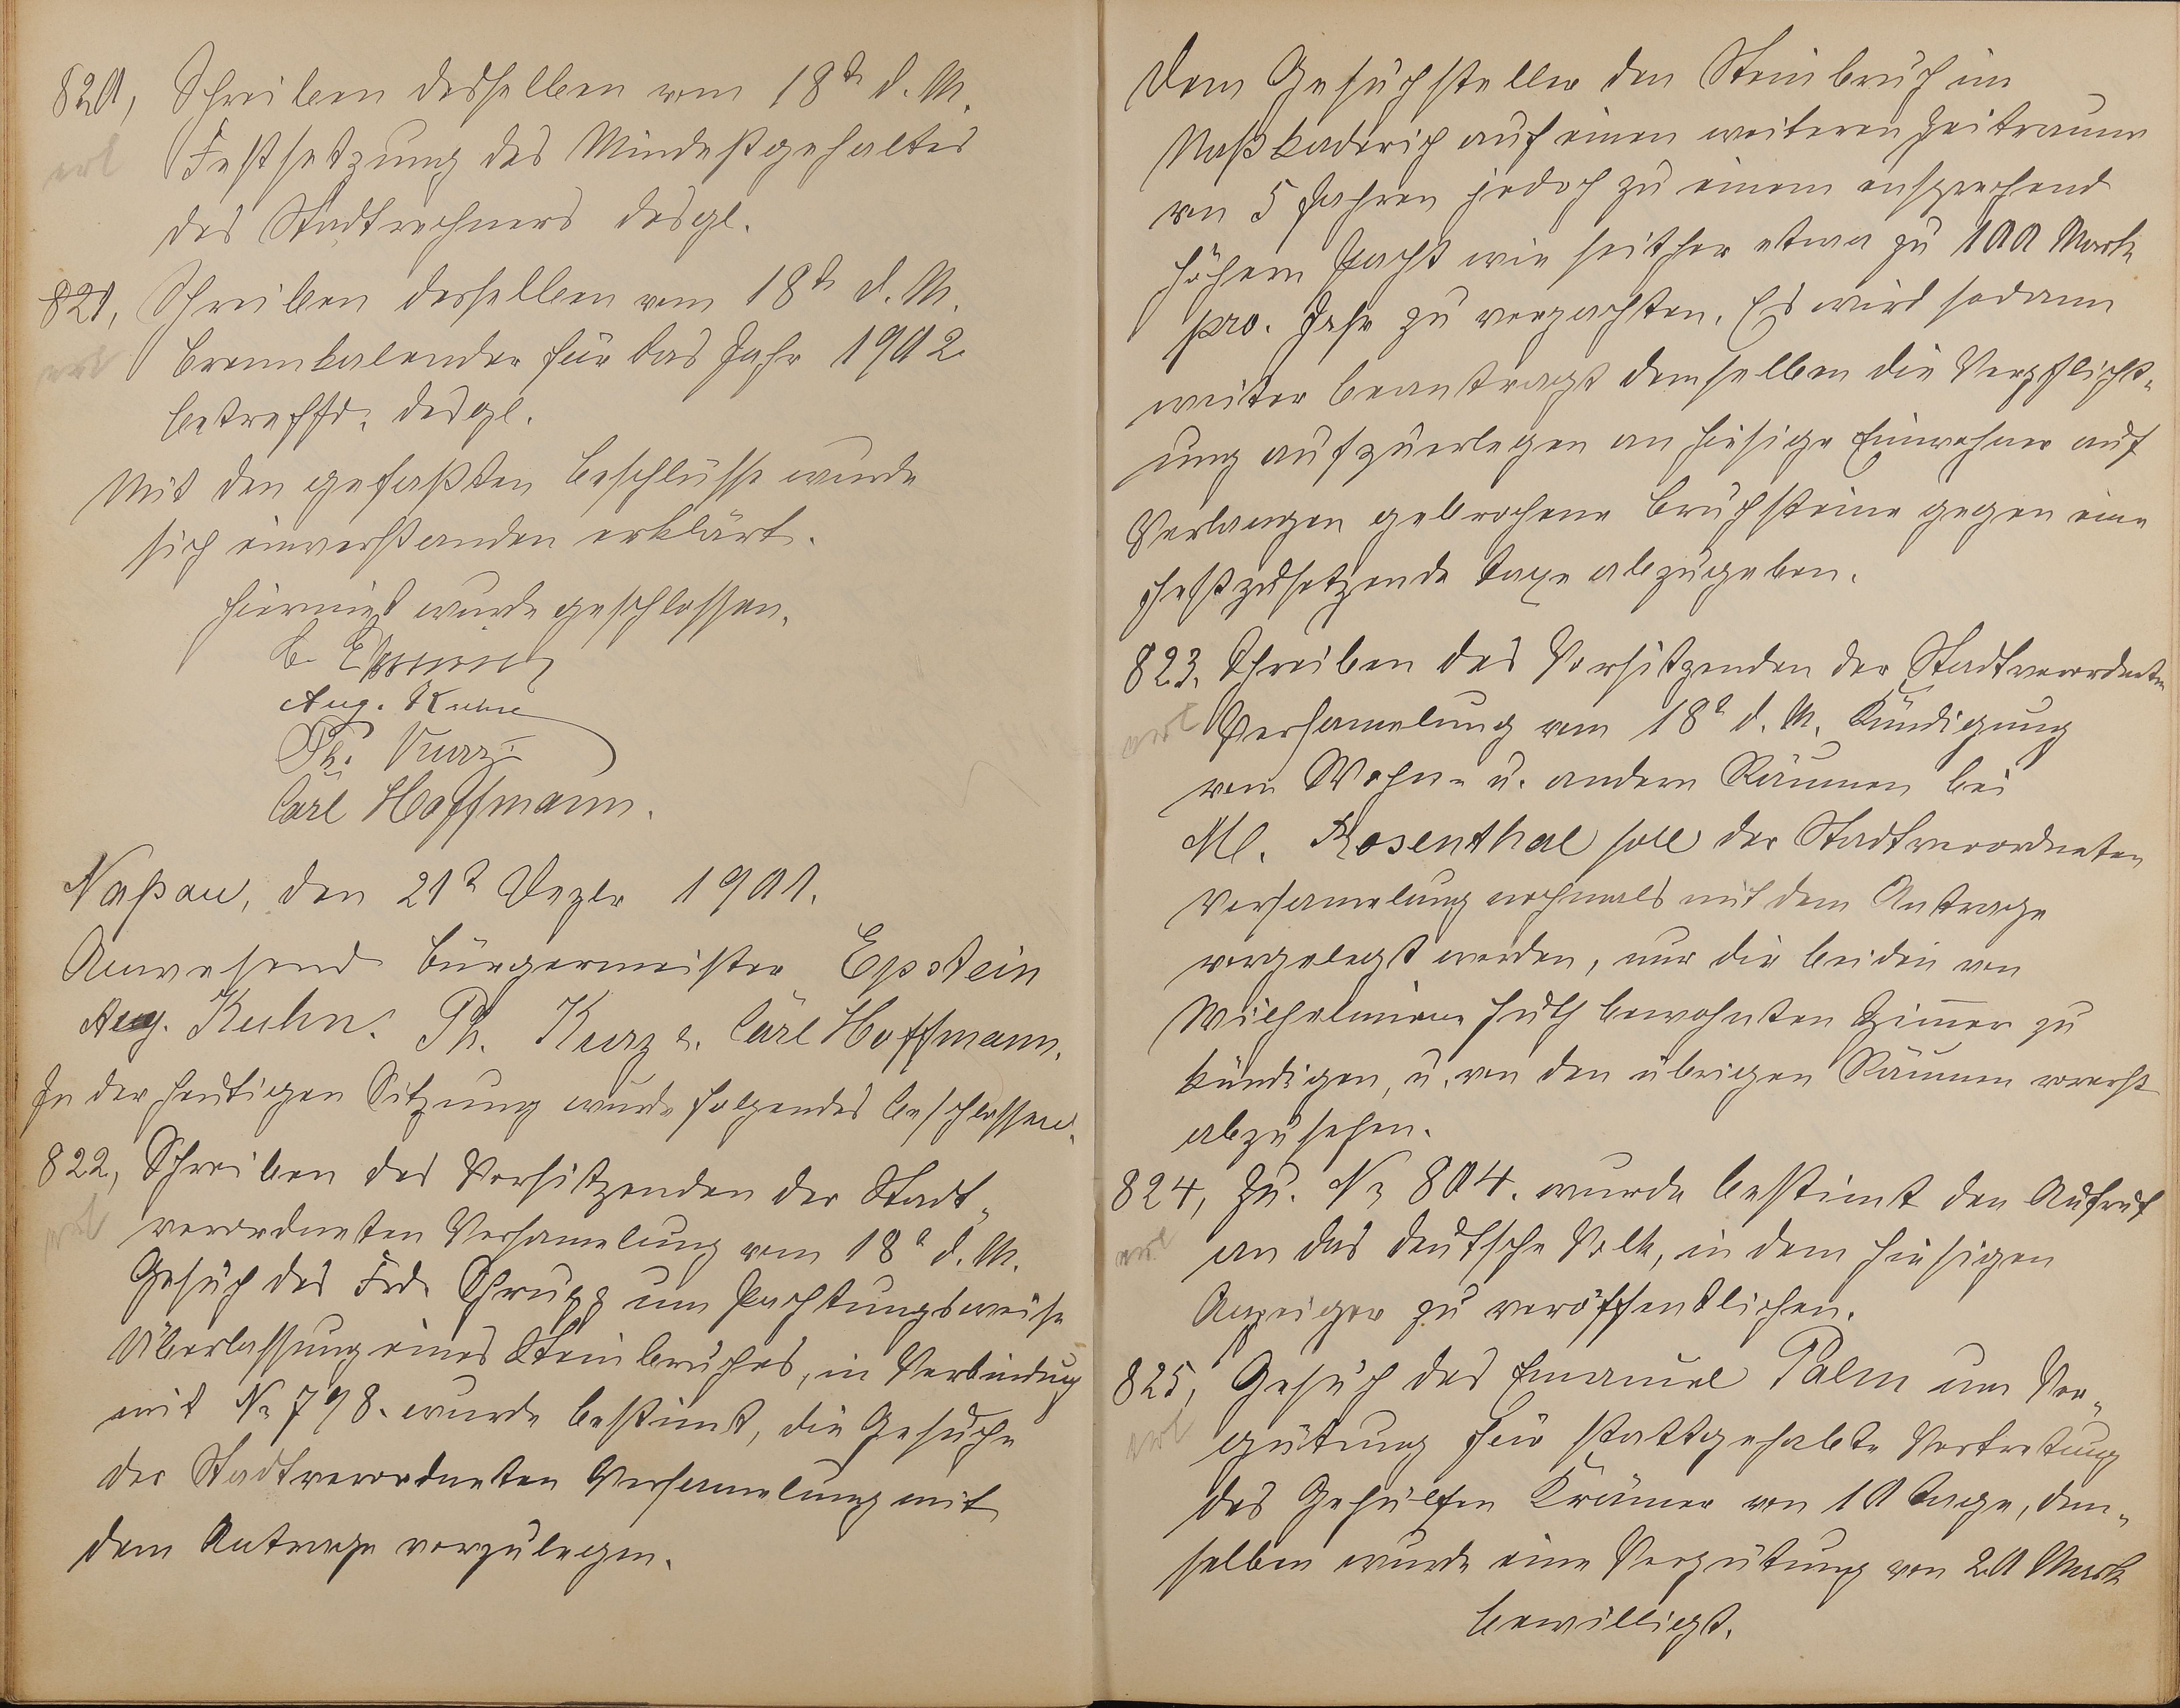 820, Schreiben desselben vom 18ten d. M.
erl Festsetzung des Mindestgehaltes
des Stadtrechners desgl.
821, Schreiben desselben vom 18ten d. M.
erl Brennkalender für das Jahr 1902
betreffd. desgl.
Mit den gefaßten Beschlüsse wurde
sich einverstanden erklärt.
Hiermit wurde geschlossen.
Aug. Kuhn
Ph. Kurz
Carl Hoffmann.
Naßau, den 21t Dezbr 1901.
Anwesend Bürgermeister Epstein
Aug. Kuhn. Ph. Kurz u. Carl Hoffmann.
In der heutigen Sitzung wurde folgendes beschlossen.
822, Schreiben des Vorsitzenden der Stadt-
erl verordneten Versamelung vom 18t d. M.
Gesuch des Frd. Schrupp um Pachtungsweise
Überlassung eines Steinbruches, in Verbindung
mit No 798. wurde bestimt, die Gesuche
der Stadtverordneten Versamelung mit
dem Antrage vorzulegen.
Dem Gesuchsteller den Steinbruch im
auf einen weiteren Zeitraum
von 5 Jahren jedoch zu einem ensprechend
höhern Pacht wie seither etwa zu 100 Mark
pro. Jahr zu verpachten. Es wird sodann
weiter beantragt demselben die Verpflicht-
ung aufzuerlegen an hiesige Einwohner auf
Verlangen gebrochene Bruchsteine gegen eine
festzusetzende Taxe abzugeben.
823. Schreiben des Vorsitzenden der Stadtverordneten
erl Versamelung vom 18t d. M. Kündigung
von Wohn- u. andern Räumen bei
M. Rosenthal soll der Stadtverordneten
Versamelung nochmals mit dem Antrage
vorgelegt werden, nur die beiden von
Wilhelmine Huth bewohnten Zimer zu
kündigen, u. von den übrigen Räumen vorerst
abzusehen.
824, Zu. No 804. wurde bestimt den Aufruf
erl an das deutsche Volk, in dem hiesigen
Anzeiger zu veröffentlichen.
825, Gesuch des Emanuel Palm um Ver-
erl gütung für stattgehabte Vertretung
des Gehülfen Krämer von 10 Tage, dem-
selben wurde eine Vergütung von 20 Mark
bewilligt.